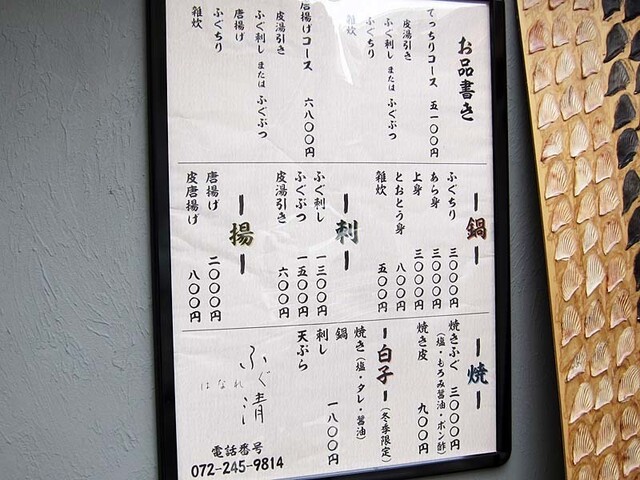 お品書き
てっちりコース 五一〇〇円
皮湯引き
ふぐ刺し または ふぐぶつ
ふぐちり
雑炊
唐揚げコース 六八〇〇円
皮湯引き
ふぐ刺し または ふぐぶつ
唐揚げ
ふぐちり
雑炊
鍋
ふぐちり 三〇〇〇円
あら身 三〇〇〇円
上身 三〇〇〇円
とおとう身 八〇〇円
雑炊 五〇〇円
刺
ふぐ刺し 一三〇〇円
ふぐぶつ 一五〇〇円
皮湯引き 六〇〇円
揚
唐揚げ 二〇〇〇円
皮唐揚げ 八〇〇円
焼
焼きふぐ 三〇〇〇円
(塩・もろみ醤油・ポン酢)
焼き皮 九〇〇円
白子 (冬季限定)
焼き(塩・タレ・醤油)
鍋
刺し 一八〇〇円
天ぷら
ふぐ清
はなれ
電話番号
072-245-9814